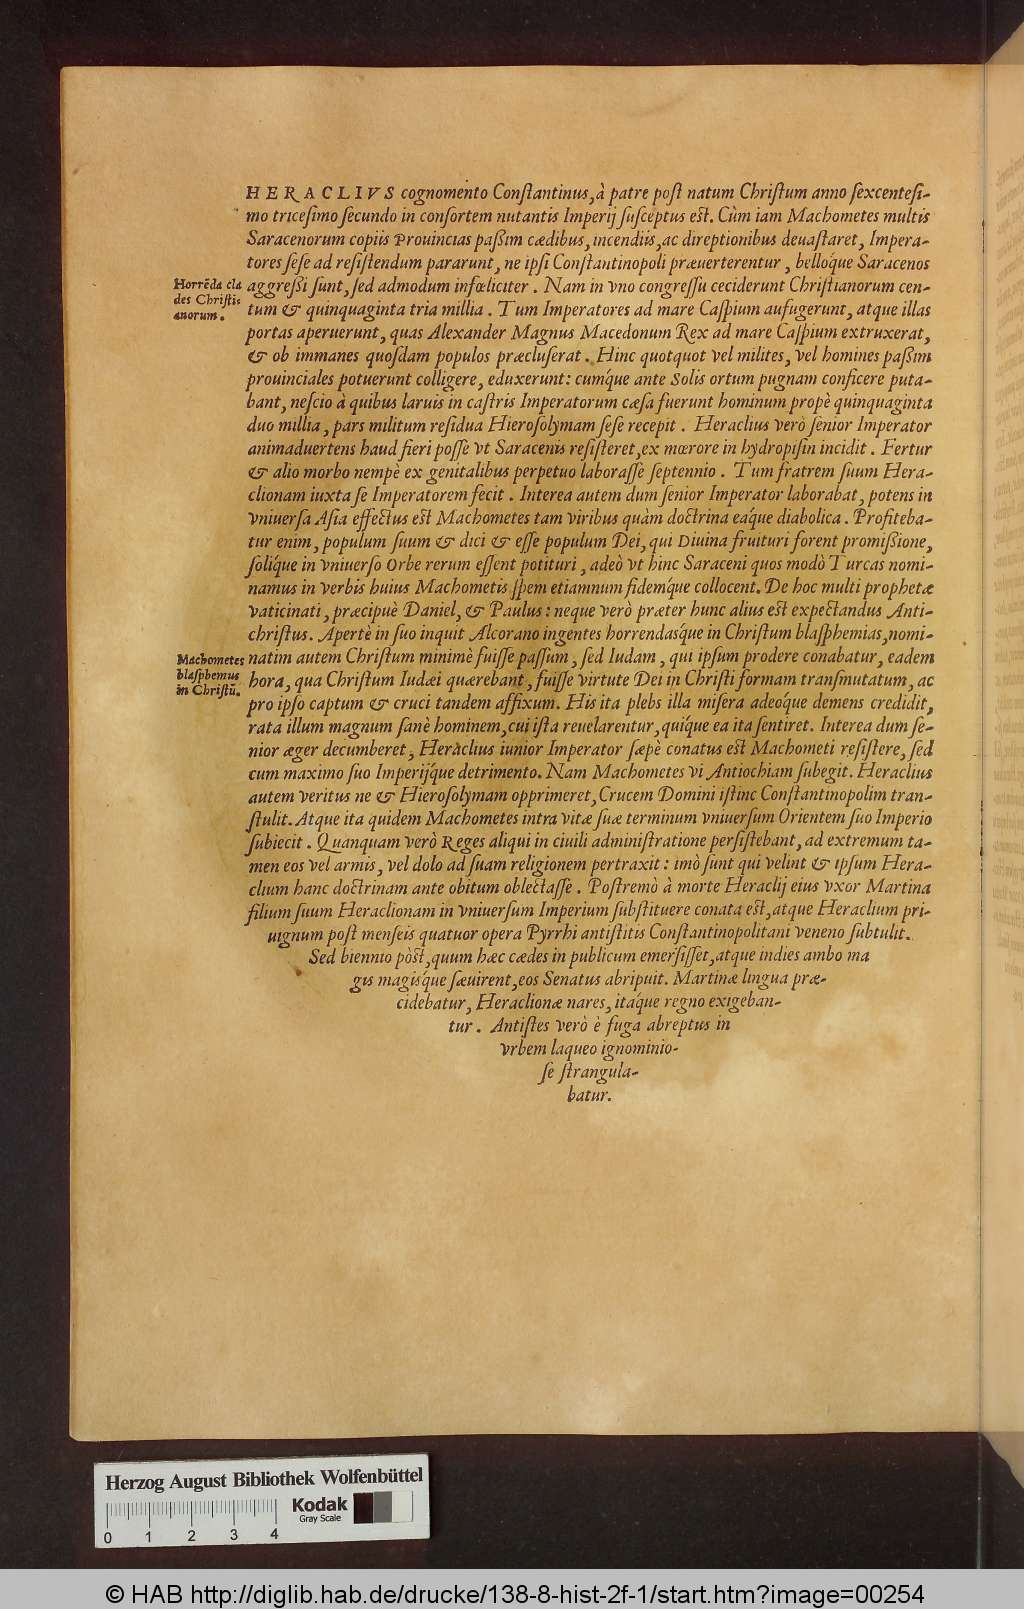 HERACLIVS cognomento Conſtantinus, à patre poſt natum Chriſtum anno ſexcenteſi-
mo triceſimo ſecundo in conſortem nutantis Imperij ſuſceptus eſt. Cùm iam Machometes multis
Saracenorum copiis Prouincias paßim cædibus, incendiis, ac direptionibus deuaſtaret, Impera-
tores ſeſe ad reſiſtendum pararunt, ne ipſi Conſtantinopoli præuerterentur, belloq́ue Saracenos
Horrēda cla
des Chriſtia
anorum.
aggreßi ſunt, ſed admodum infœliciter. Nam in vno congreſſu ceciderunt Chriſtianorum cen-
tum & quinquaginta tria millia. Tum Imperatores ad mare Caſpium aufugerunt, atque illas
portas aperuerunt, quas Alexander Magnus Macedonum Rex ad mare Caſpium extruxerat,
& ob immanes quoſdam populos præcluſerat. Hinc quotquot vel milites, vel homines paßim
prouinciales potuerunt colligere, eduxerunt: cumq́ue ante Solis ortum pugnam conficere puta-
bant, neſcio à quibus laruis in caſtris Imperatorum cæſa fuerunt hominum propè quinquaginta
duo millia, pars militum reſidua Hieroſolymam ſeſe recepit. Heraclius verò ſenior Imperator
animaduertens haud fieri poſſe vt Saracenis reſiſteret, ex mœrore in hydropiſin incidit. Fertur
& alio morbo nempè ex genitalibus perpetuo laboraſſe ſeptennio. Tum fratrem ſuum Hera-
clionam iuxta ſe Imperatorem fecit. Interea autem dum ſenior Imperator laborabat, potens in
vniuerſa Aſia effectus eſt Machometes tam viribus quàm doctrina eaq́ue diabolica. Profiteba-
tur enim, populum ſuum & dici & eſſe populum Dei, qui Diuina fruituri forent promißione,
ſoliq́ue in vniuerſo Orbe rerum eſſent potituri, adeò vt hinc Saraceni quos modò Turcas nomi-
namus in verbis huius Machometis ſpem etiamnum fidemq́ue collocent. De hoc multi prophetæ
vaticinati, præcipuè Daniel, & Paulus: neque verò præter hunc alius eſt expectandus Anti-
chriſtus. Apertè in ſuo inquit Alcorano ingentes horrendasq́ue in Chriſtum blaſphemias, nomi-
Machometes
blaſphemus
in Chriſtū.
natim autem Chriſtum minimè fuiſſe paſſum, ſed Iudam, qui ipſum prodere conabatur, eadem
hora, qua Chriſtum Iudæi quærebant, fuiſſe virtute Dei in Chriſti formam tranſmutatum, ac
pro ipſo captum & cruci tandem affixum. His ita plebs illa miſera adeoq́ue demens credidit,
rata illum magnum ſanè hominem, cui iſta reuelarentur, quiq́ue ea ita ſentiret. Interea dum ſe-
nior æger decumberet, Heraclius iunior Imperator ſæpè conatus eſt Machometi reſiſtere, ſed
cum maximo ſuo Imperijq́ue detrimento. Nam Machometes vi Antiochiam ſubegit. Heraclius
autem veritus ne & Hieroſolymam opprimeret, Crucem Domini iſtinc Conſtantinopolim tran-
ſtulit. Atque ita quidem Machometes intra vitæ ſuæ terminum vniuerſum Orientem ſuo Imperio
ſubiecit. Quanquam verò Reges aliqui in ciuili adminiſtratione perſiſtebant, ad extremum ta-
men eos vel armis, vel dolo ad ſuam religionem pertraxit: imò ſunt qui velint & ipſum Hera-
clium hanc doctrinam ante obitum oblectaſſe. Poſtremò à morte Heraclij eius vxor Martina
filium ſuum Heraclionam in vniuerſum Imperium ſubſtituere conata eſt, atque Heraclium pri-
uignum poſt menſeis quatuor opera Pyrrhi antiſtitis Conſtantinopolitani veneno ſubtulit.
Sed biennio pòſt, quum hæc cædes in publicum emerſiſſet, atque indies ambo ma
gis magiſq́ue ſæuirent, eos Senatus abripuit. Martinæ lingua præ-
cidebatur, Heraclionæ nares, itaq́ue regno exigeban-
tur. Antiſtes verò è fuga abreptus in
vrbem laqueo ignominio-
ſe ſtrangula-
batur.
Herzog August Bibliothek Wolfenbüttel
Kodak
Gray Scale
0 1 2 3 4
© HAB http://diglib.hab.de/drucke/138-8-hist-2f-1/start.htm?image=00254